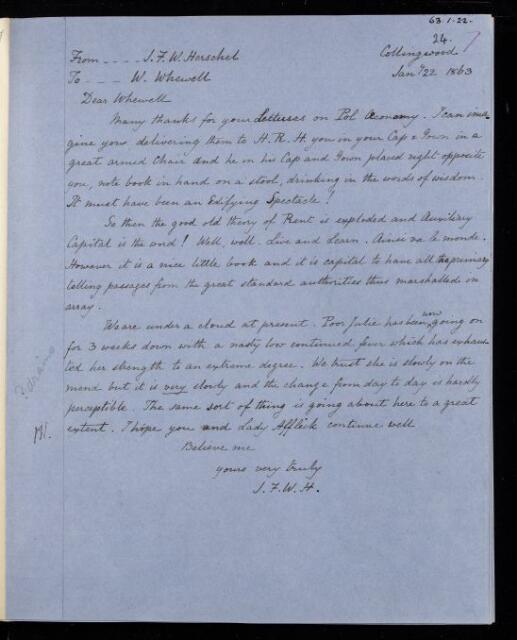 63.1.22.
24.
From _ _ _ _ J.F.W. Herschel
Collingwood
To _ _ _ W. Whewell
Jany 22 1863
Dear Whewell
Many thanks for your Lectures on Pol Œconomy. I can ima-
gine you delivering them to H.R.H. you in your Cap & Gown in a
great armed Chair and he in his Cap and Gown placed right opposite
you, note book in hand on a stool, drinking in the words of wisdom.
It must have been an Edifying Spectacle!
So then the good old theory of Rent is exploded and Auxiliary
Capital is the word! Well, well. Live and Learn. Ainsi va le monde.
However it is a nice little book and it is capital to have all the primary
telling passages from the great standard authorities thus marshalled in
array.
We are under a cloud at present. Poor Julie has been now going on
for 3 weeks down with a nasty low continued fever which has exhaus-
ted her strength to an extreme degree. We trust she is slowly on the
mend but it is very slowly and the change from day to day is hardly
perceptible. The same sort of thing is going about here to a great
extent. I hope you and Lady Affleck continue well
Believe me
yours very truly
J.F.W.H.